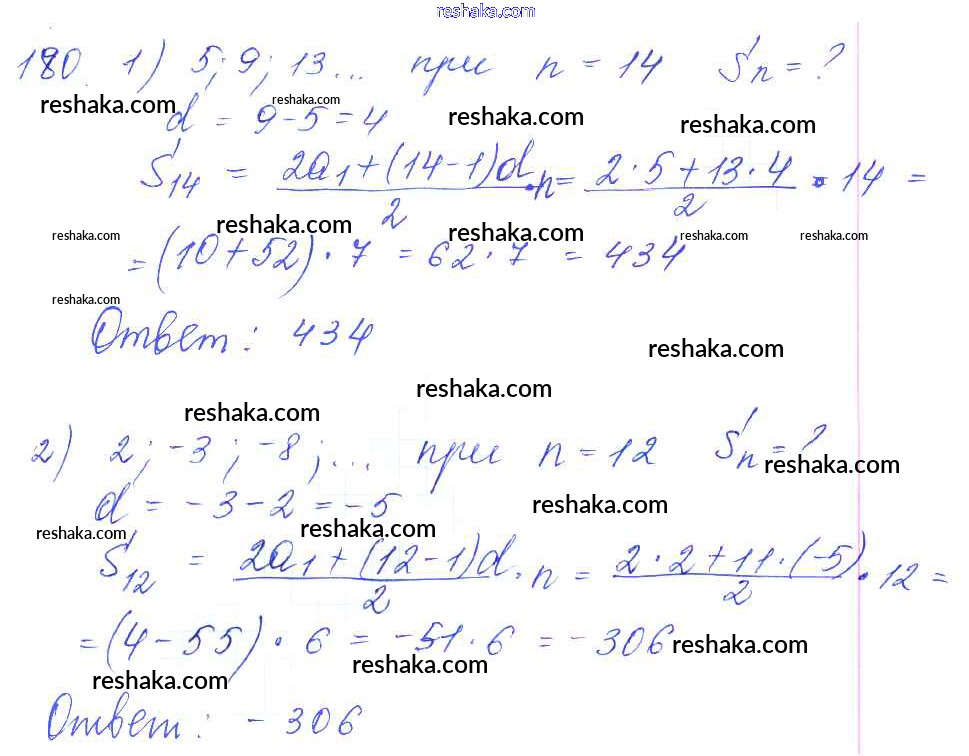 reshaka.com
180. 1) 5; 9; 13... при n = 14 Sn = ?
reshaka.com reshaka.com reshaka.com reshaka.com
d = 9-5 = 4
S14 = (2a1+(14-1)d)/2 · n = (2·5+13·4)/2 · 14 =
reshaka.com reshaka.com reshaka.com reshaka.com reshaka.com
= (10+52) · 7 = 62 · 7 = 434
reshaka.com
Ответ: 434
reshaka.com
reshaka.com
reshaka.com
2) 2; -3; -8; ... при n = 12 Sn = ?
reshaka.com
d = -3-2 = -5
reshaka.com
reshaka.com reshaka.com
S12 = (2a1+(12-1)d)/2 · n = (2·2+11·(-5))/2 · 12 =
= (4-55) · 6 = -51 · 6 = -306
reshaka.com
reshaka.com
reshaka.com
Ответ: -306